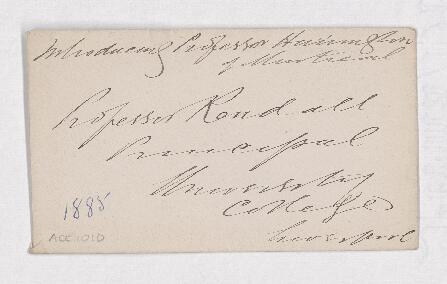 Introducing Professor Harrington
of Montreal
Professor Rendall
Principal
University
College
Liverpool
1885